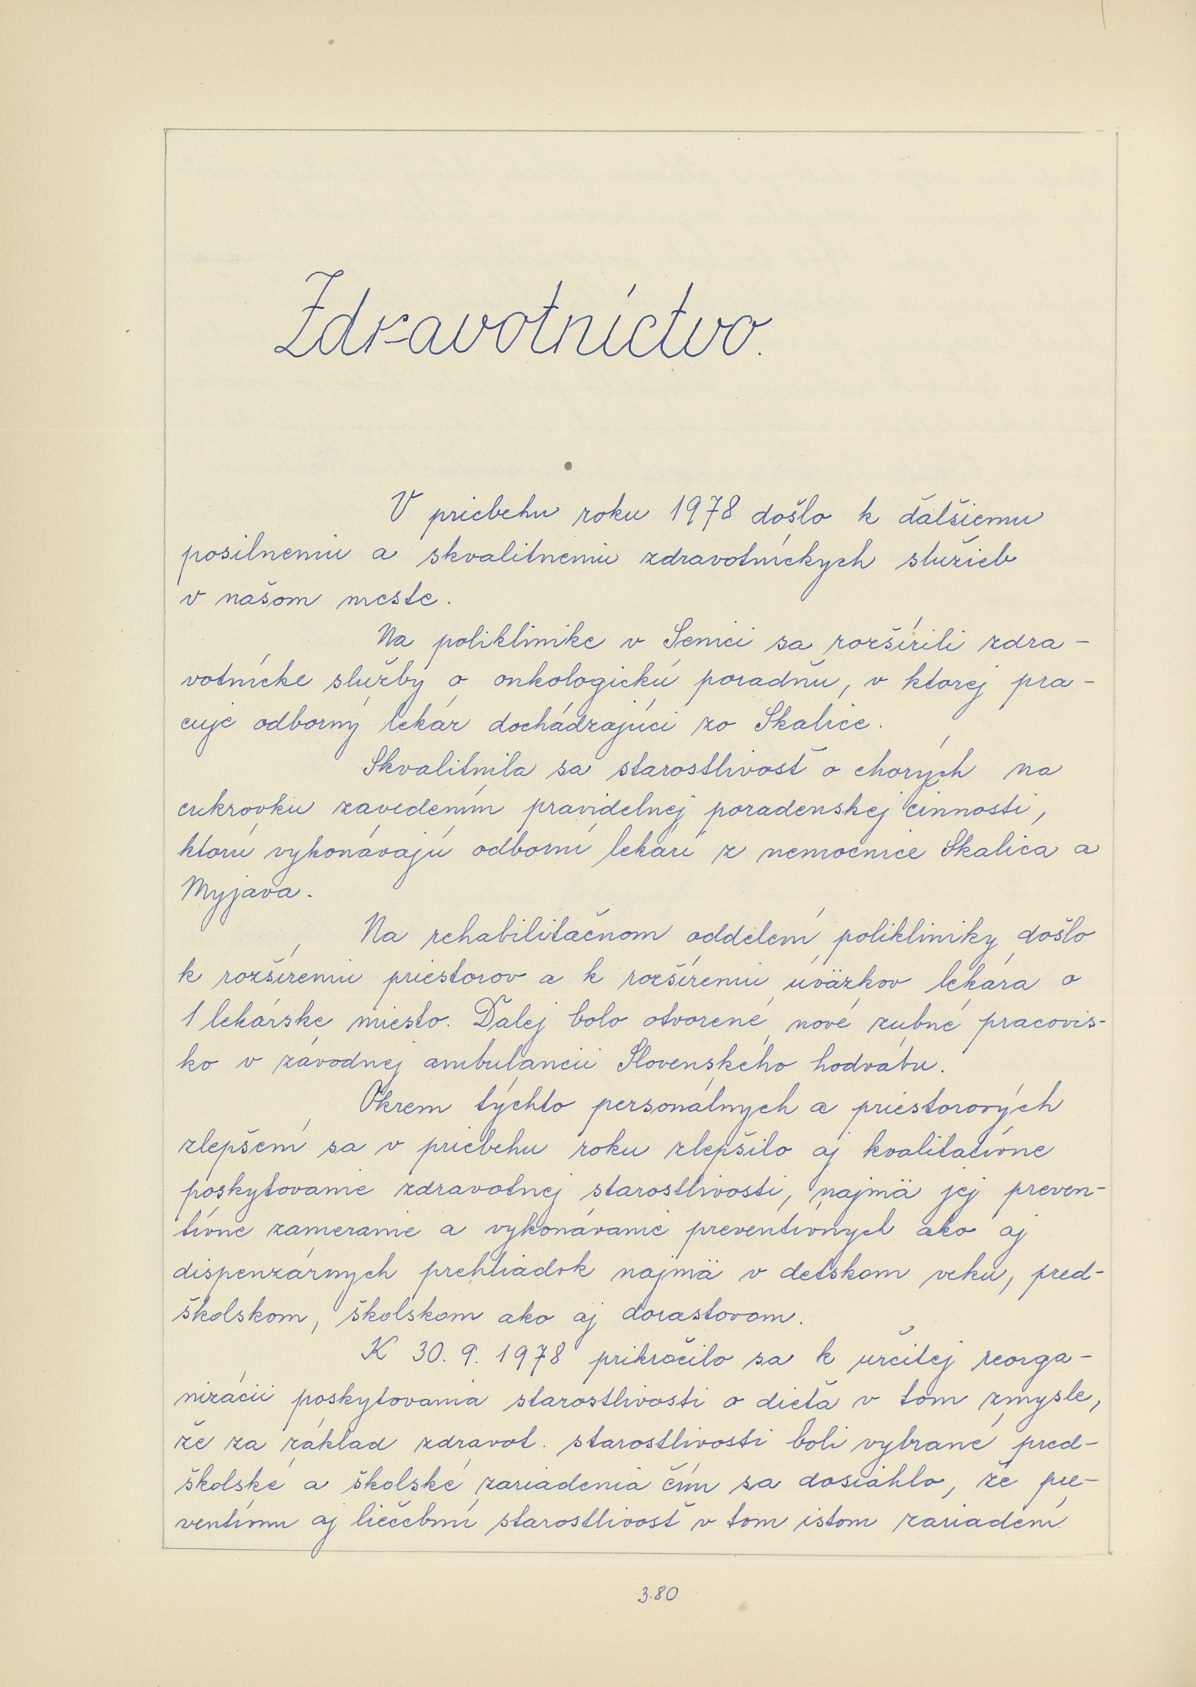 Zdravotníctvo.
V priebehu roku 1978 došlo k ďalšiemu
posilneniu a skvalitneniu zdravotníckych služieb
v našom meste.
Na poliklinike v Senici sa rozšírili zdra-
votnícke služby o onkologickú poradňu, v ktorej pra-
cuje odborný lekár dochádzajúci zo Skalice.
Skvalitnila sa starostlivosť o chorých na
cukrovku zavedením pravidelnej poradenskej činnosti,
ktorú vykonávajú odborní lekári z nemocnice Skalica a
Myjava.
Na rehabilitačnom oddelení polikliniky došlo
k rozšíreniu priestorov a k rozšíreniu úväzkov lekára o
1 lekárske miesto. Ďalej bolo otvorené nové zubné pracovis-
ko v závodnej ambulancii Slovenského hodvábu.
Okrem týchto personálnych a priestorových
zlepšení sa v priebehu roku zlepšilo aj kvalitatívne
poskytovanie zdravotnej starostlivosti, najmä jej preven-
tívne zameranie a vykonávanie preventívnych ako aj
dispenzárnych prehliadok najmä v detskom veku, pred-
školskom, školskom ako aj dorastovom.
K 30. 9. 1978 prikročilo sa k určitej reorga-
nizácii poskytovania starostlivosti o dieťa v tom zmysle,
že za základ zdravot. starostlivosti boli vybrané pred-
školské a školské zariadenia čím sa dosiahlo, že pre-
ventívnu aj liečebnú starostlivosť v tom istom zariadení
380